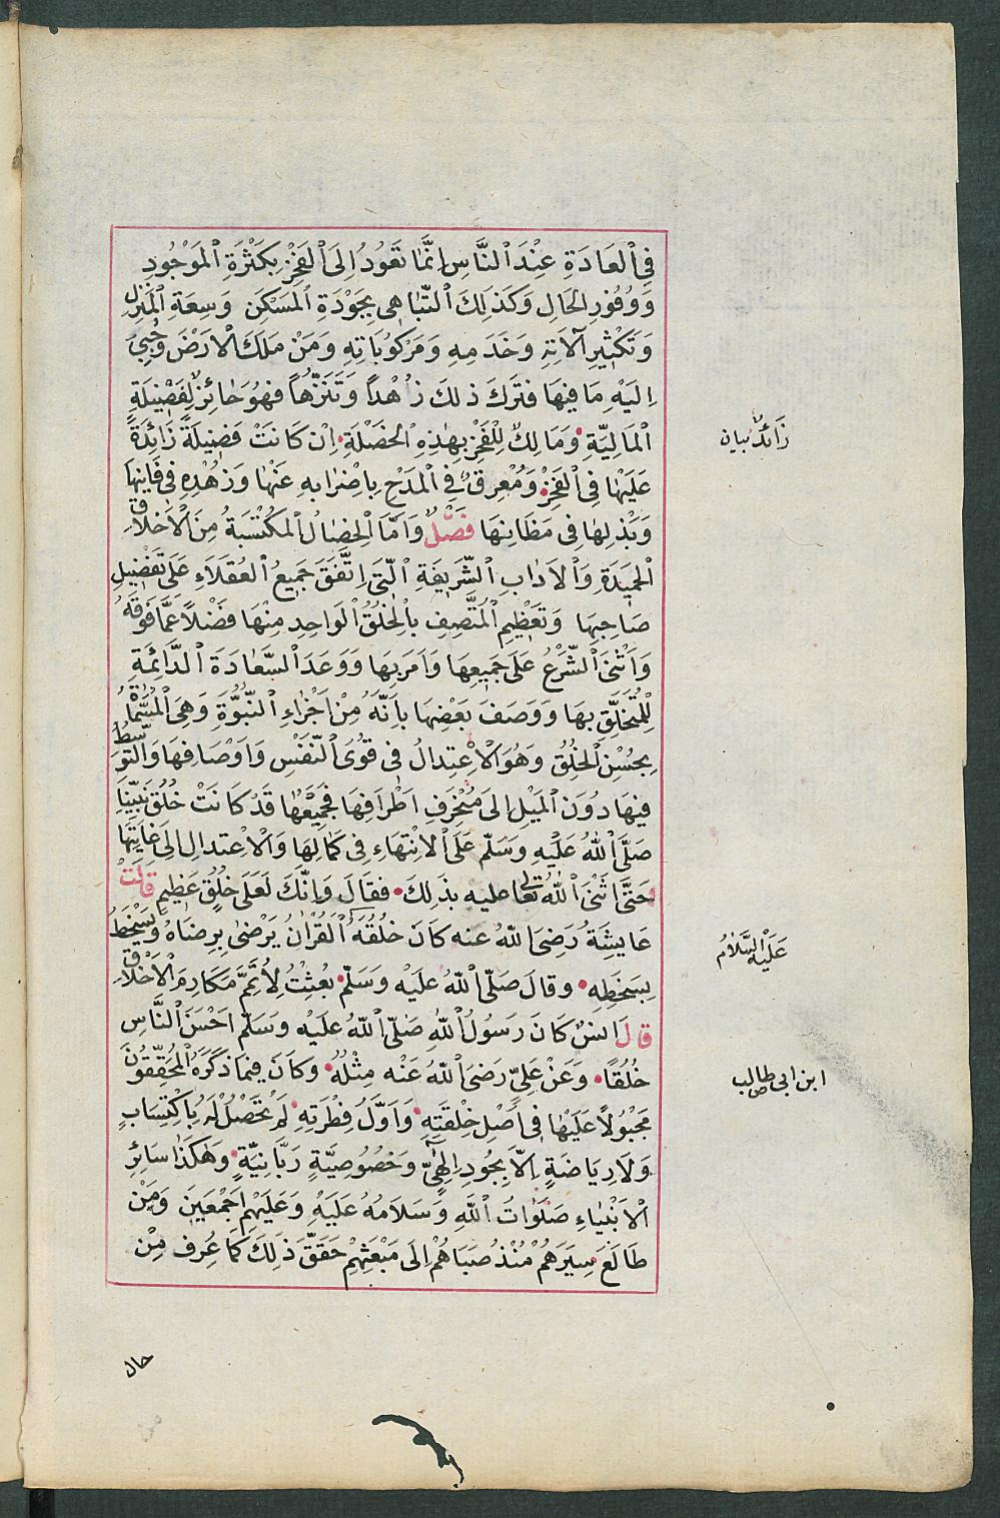 فِي ٱلْعَادَةِ عِنْدَ ٱلنَّاسِ اِنَّمَا تَعُودُ اِلَى ٱلْفَخْرِ بِكَثْرَةِ ٱلْمَوْجُودِ
وَوُفُورِ الْحَالِ وَكَذٰلِكَ ٱلتَّبَاهِى بِجَوْدَةِ الْمَسْكَنِ وَسِعَةِ الْمَنْزِلِ
وَتَكْثِيرِ آلَاتِهِ وَخَدَمِهِ وَمَرْكُوبَاتِهِ وَمَنْ مَلَكَ الْاَرْضَ وَجُبِىَ
اِلَيْهِ مَا فِيهَا فَتَرَكَ ذٰلِكَ زُهْداً وَتَنَزُّهاً فَهُوَ حَائِزٌ لِفَضِيلَةِ
ٱلْمَالِيَّةِ وَمَالِكٌ لِلْفَخْرِ بِهٰذِهِ الْخَصْلَةِ اِنْ كَانَتْ فَضِيلَةً زَائِدَةً
عَلَيْهَا فِى ٱلْفَخْرِ وَمُعْرِقٌ فِي ٱلْمَدْحِ بِاِضْرَابِهِ عَنْهَا وَزُهْدِهِ فِى فَانِيهَا
وَبَذْلِهَا فِى مَظَانِّهَا فَصْلٌ وَاَمَّا ٱلْخِصَالُ ٱلْمُكْتَسَبَةُ مِنَ ٱلْاَخْلَاقِ
ٱلْحَمِيدَةِ وَٱلْاٰدَابِ ٱلشَّرِيفَةِ ٱلَّتِى اِتَّفَقَ جَمِيعُ ٱلْعُقَلَاءِ عَلَى تَفْضِيلِ
صَاحِبِهَا وَتَعْظِيمِ ٱلْمُتَّصِفِ بِٱلْخُلُقِ ٱلْوَاحِدِ مِنْهَا فَضْلاً عَمَّا فَوْقَهُ
وَاَثْنَى ٱلشَّرْعُ عَلَى جَمِيعِهَا وَاَمَرَ بِهَا وَوَعَدَ ٱلسَّعَادَةَ ٱلدَّائِمَةِ
لِلْمُتَخَلِّقِ بِهَا وَوَصَفَ بَعْضِهَا بِاَنَّهُ مِنْ اَجْزَاءِ ٱلنُّبُوَّةِ وَهِىَ ٱلْمُسَمَّاةُ
بِحُسْنِ ٱلْخُلُقِ وَهُوَ ٱلْاِعْتِدَالُ فِى قُوَى ٱلنَّفْسِ وَاَوْصَافِهَا وَالتَّوَسُّطُ
فِيهَا دُونَ ٱلْمَيْلِ اِلَى مُنْحَرِفِ اَطْرَافِهَا فَجَمِيعُهَا قَدْ كَانَتْ خُلُقَ نَبِيِّنَا
صَلَّى ٱللّٰهُ عَلَيْهِ وَسَلَّمَ عَلَى ٱلْاِنْتِهَاءِ فِى كَمَالِهَا وَٱلْاِعْتِدَالِ اِلَى غَايَتِهَا
حَتَّى اَثْنَى ٱللّٰهُ تعالى عليه بِذٰلِكَ فَقَالَ وَاِنَّكَ لَعَلَى خُلُقٍ عَظِيمٍ قَالَتْ
عَايِشَةُ رَضِىَ اللّٰهُ عنه كَانَ خُلُقُهُ ٱلْقُرْاٰنَ يَرْضٰى بِرِضَاهُ وَيَسْخَطُ
بِسَخَطِهِ وقال صَلَّى ٱللّٰهُ عَلَيْهِ وَسَلَّمَ بُعِثْتُ لِاُتَمِّمَ مَكَارِمَ ٱلْاَخْلَاقِ
قَالَ انسٌ كَانَ رَسُولُ ٱللّٰهِ صَلَّى ٱللّٰهُ عَلَيْهِ وَسَلَّمَ اَحْسَنَ ٱلنَّاسِ
خُلُقًا وَعَنْ عَلِيٍّ رَضِىَ ٱللّٰهُ عَنْهُ مِثْلُهُ وَكَانَ فِيمَا ذَكَرَهُ ٱلْمُحَقِّقُونَ
مَجْبُولاً عَلَيْهَا فِى اَصْلِ خِلْقَتِهِ وَاَوَّلُ فِطْرَتِهِ لَمْ تَحْصُلْ لَهُ بِاكْتِسَابٍ
وَلَا رِيَاضَةٍ اِلَّا بِجُودٍ اِلٰهِيٍّ وَخُصُوصِيَّةٍ رَبَّانِيَّةٍ وَهٰكَذَا سَائِرِ
ٱلْاَنْبِيَاءِ صَلَوَاتُ ٱللّٰهِ وَسَلَامُهُ عَلَيْهِ وَعَلَيْهِمْ اَجْمَعِينَ وَمَنْ
طَالَعَ سِيَرَهُمْ مُنْذُ صِبَاهُمْ اِلَى مَبْعَثِهِمْ حَقَّقَ ذٰلِكَ كَمَا عُرِفَ مِنْ
زَائِدٌ بيان
عَلَيْهِ السَّلَامُ
ابن ابى طالب
حال